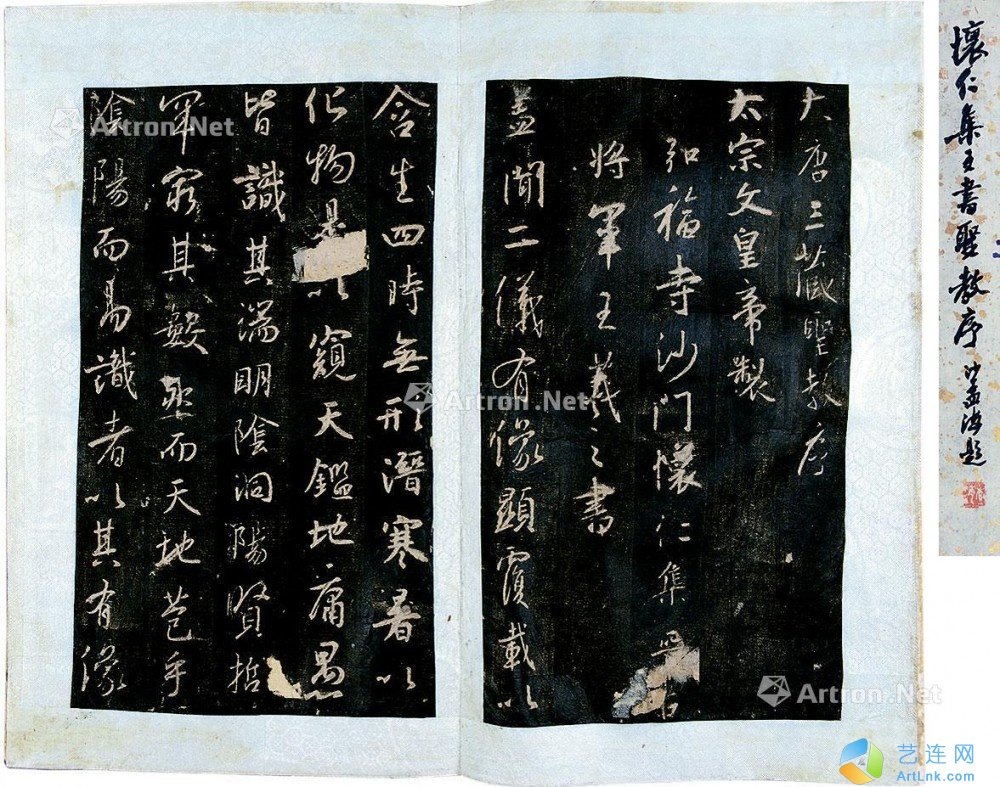 懷仁集王書聖教序 沙孟海題
大唐三藏聖教序
太宗文皇帝製
弘福寺沙門懷仁集晉右
將軍王羲之書
蓋聞二儀有像顯覆載以
含生四時無形潛寒暑以
化物是以窺天鑑地庸愚
皆識其端明陰洞陽賢哲
罕窮其數然而天地苞乎
陰陽而易識者以其有像
Artron.Net
Artron.Net
Artron.Net
艺连网
ArtLnk.com